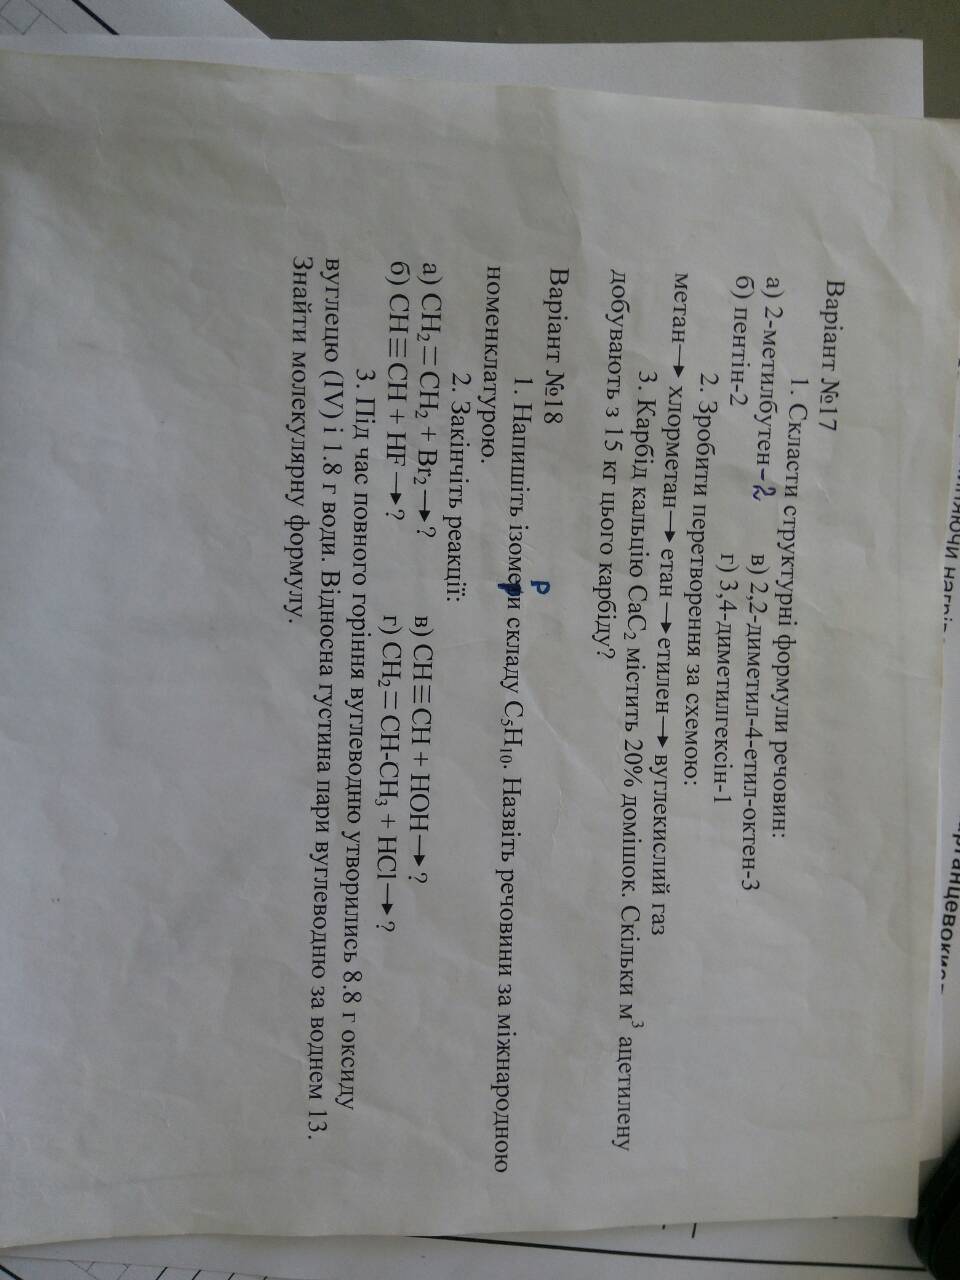 Варіант №17
1. Скласти структурні формули речовин:
а) 2-метилбутен-2 в) 2,2-диметил-4-етил-октен-3
б) пентін-2 г) 3,4-диметилгексін-1
2. Зробити перетворення за схемою:
метан→ хлорметан→ етан → етилен→ вуглекислий газ
3. Карбід кальцію CaC₂ містить 20% домішок. Скільки м³ ацетилену
добувають з 15 кг цього карбіду?
Варіант №18
р
1. Напишіть ізомери складу C₅H₁₀. Назвіть речовини за міжнародною
номенклатурою.
2. Закінчіть реакції:
а) CH₂=CH₂ + Br₂→? в) CH≡CH + HOH→?
б) CH≡CH + HF→? г) CH₂=CH-CH₃ + HCl→?
3. Під час повного горіння вуглеводню утворились 8.8 г оксиду
вуглецю (IV) і 1.8 г води. Відносна густина пари вуглеводню за воднем 13.
Знайти молекулярну формулу.